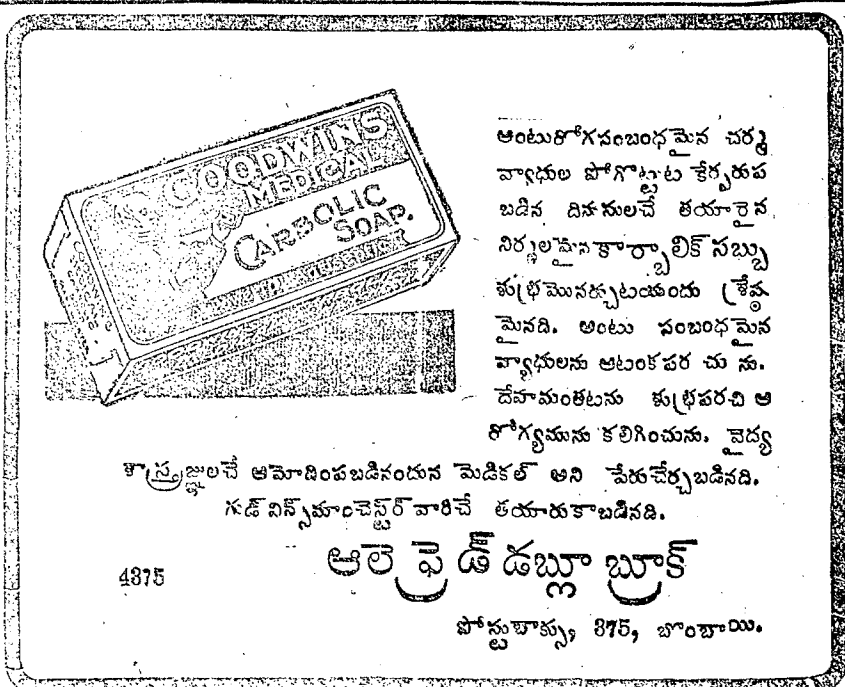 GOODWINS
MEDICAL
CARBOLIC
SOAP.
అంటురోగసంబంధమైన చర్మ
వ్యాధుల పోగొట్టుట కేర్పరుప
బడిన దినుసులచే తయారైన
నిర్మలమైన కార్బాలిక్ సబ్బు
శుభ్రమొనర్చుటయందు శ్రేష్ఠ
మైనది. అంటు సంబంధమైన
వ్యాధులను ఆటంకపర చు ను.
దేహమంతటను శుభ్రపరచి ఆ
రోగ్యమును కలిగించును. వైద్య
శాస్త్రజ్ఞులచే ఆమోదింపబడినందున మెడికల్ అని పేరుచేర్చబడినది.
గుడ్ విన్స్‌మాంచెస్టర్ వారిచే తయారుకాబడినది.
ఆలె ఫ్రెడ్ డబ్లూ బ్రూక్
4375
పోస్టుబాక్సు, 375, బొంబాయి.